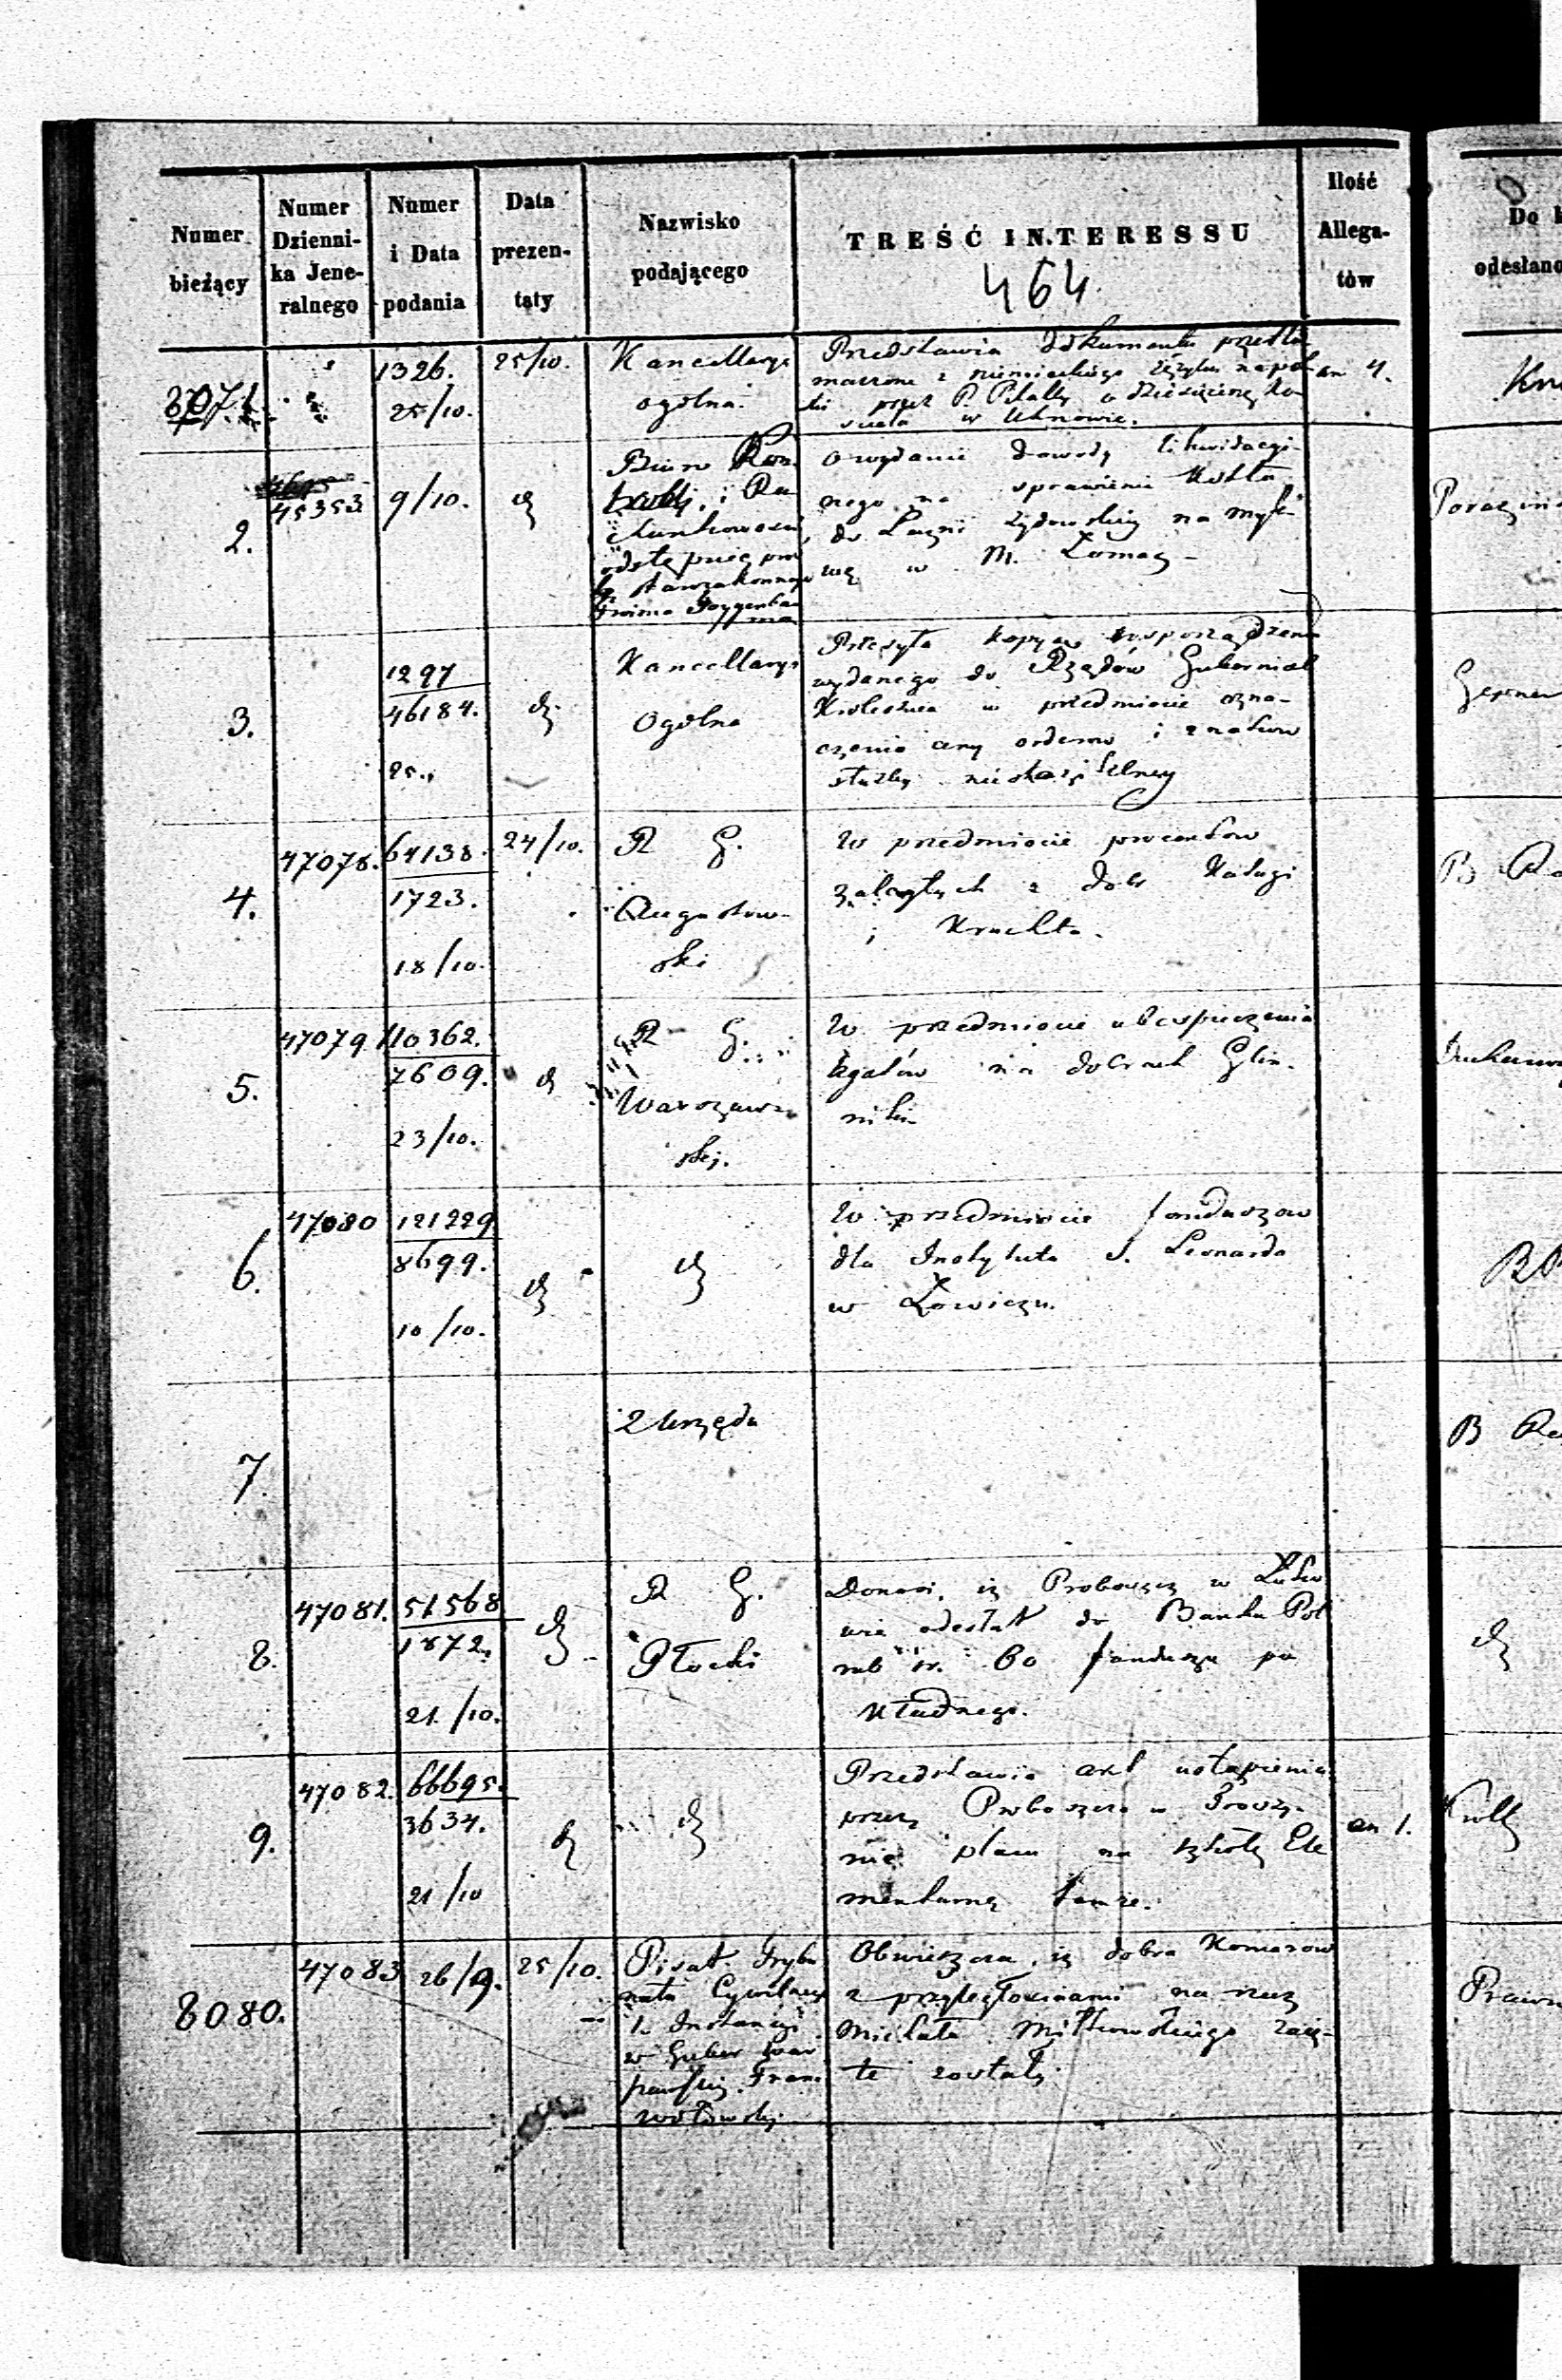 Numer bieżący
Numer Dzienni-ka Jene-ralnego
Numer i Data podania
Data prezen-taty
Nazwisko podającego
TREŚĆ INTERESSU
464.
Ilość Allega-tów
Do
odesłano
8071.
1326.
25/10.
25/10.
Kancellarya
ogólna.
Przedstawia dokumenta przetło
maczone z niemieckiego języka na pol
ski przez P. o dziesięcinę ko
ścioła w Uhnowie.
an 4.
2.
45353
9/10.
Biuro Kon
troli i Ra
chunkowości
odstępuie
starozakonnego
o wydanie dowody likwidacyi
nego na sprawienie kotła
do Łaźni żydowskiey na myk
wę w M. Łomaz -
3.
1297
46184.
25.
Kancellarya
Ogólna
Przesyła kopyą rozporządzenia
wydanego do Rządów Gubernial
Królestwa w przedmiocie ozna-
czenia ceny orderow i znakow
służby nieskazitelney
4.
47078.
64138.
1723.
18/10.
24/10.
R G.
Augustow-
ski
W przedmiocie procentow
zaległych z dobr Kaługi
i Kruchla.
B
5.
47079
110362.
7609.
23/10.
R G.
Warszaw-
skij.
W przedmiocie ubespieczenia
legatów na dobrach Glin-
niki
6.
47080
121229
8699.
10/10.
W przedmiocie funduszow
dla Instytutu S. Leonarda
w Łowiczu.
7.
Z Urzędu
B
8.
47081.
51568
1872.
21/10.
R G.
Płocki
Donosi, iż Proboszcz w
odesłał do Banku Pol
rub sr. 60 funduszu po
kładnego.
9.
47082.
66695.
3634.
21/10
Przedstawia akt ustąpienia
przez Proboszcza w
nie placu na szkołę Ele
mentarną tamże.
an 1.
8080.
47083
26/9.
25/10.
Pisarz Trybu
nału Cywilnego
1. Instancyi
w Guber War
Obwieszcza, iż dobra Komorow
z przyległościami na rzecz
Michała Miłkowskiego zaię-
te zostały.